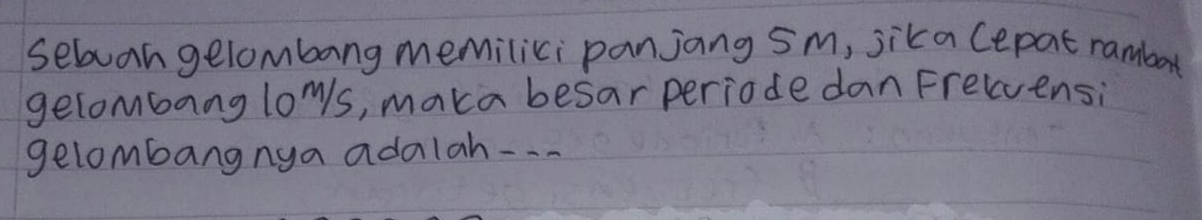 Sebuah gelombang memiliki panjang 5m, jika Cepat rambat
gelombang 10 m/s, maka besar periode dan Frekuensi
gelombangnya adalah ---